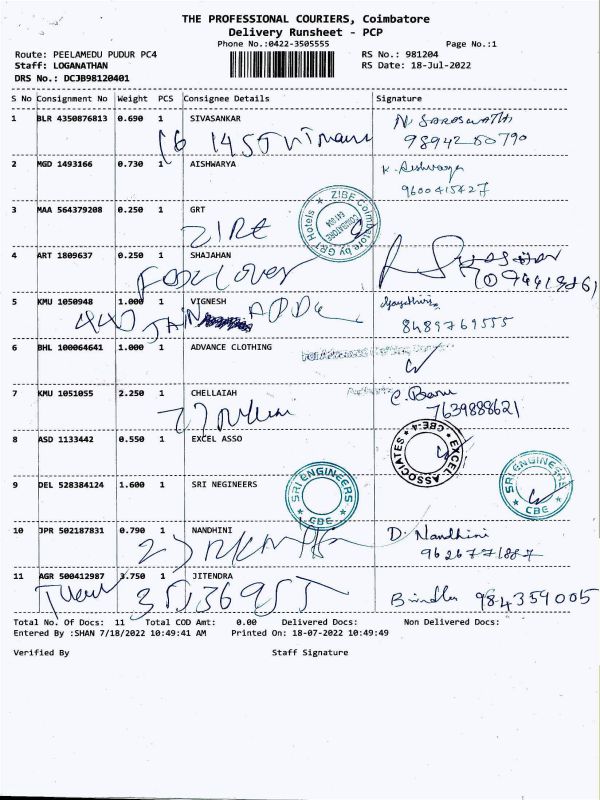 THE PROFESSIONAL COURIERS, Coimbatore
Delivery Runsheet - PCP
Phone No.:0422-3505555
Page No.:1
Route: PEELAMEDU PUDUR PC4
RS No.: 981204
Staff: LOGANATHAN
RS Date: 18-Jul-2022
DRS No.: DCJB98120401
S No Consignment No Weight PCS Consignee Details Signature
1 BLR 4350876813 0.690 1 SIVASANKAR N. SARASWATHI
98942 80790
2 MGD 1493166 0.730 1 AISHWARYA K. Aishwarya
9600415427
3 MAA 564379208 0.250 1 GRT
ZIBE Coimbatore by GRT Hotels
COIMBATORE
641 004
4 ART 1809637 0.250 1 SHAJAHAN
5 KMU 1050948 1.000 1 VIGNESH
440 JAIN
8489769555
6 BHL 100064641 1.000 1 ADVANCE CLOTHING
7 KMU 1051055 2.250 1 CHELLAIAH
7639888621
8 ASD 1133442 0.550 1 EXCEL ASSO
EXCEL ASSOCIATES CBE-4
9 DEL 528384124 1.600 1 SRI NEGINEERS
SRI ENGINEERS CBE
SRI ENGINEERS CBE
10 JPR 502187831 0.790 1 NANDHINI D. Nandhini
9626771887
11 AGR 500412987 3.750 1 JITENDRA
984359005
Total No. Of Docs: 11 Total COD Amt: 0.00 Delivered Docs: Non Delivered Docs:
Entered By :SHAN 7/18/2022 10:49:41 AM Printed On: 18-07-2022 10:49:49
Verified By Staff Signature